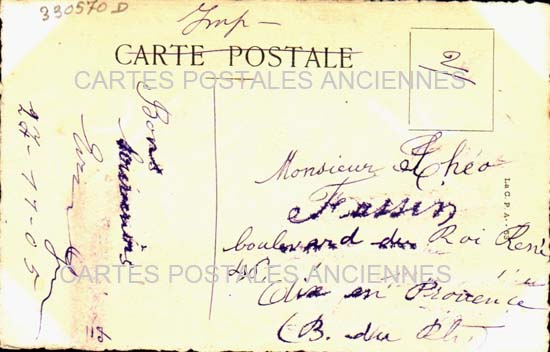 330570 D
Imp -
CARTE POSTALE
CARTES POSTALES ANCIENNES
2
Bons
souvenirs
27-11-05
Monsieur Théo
boulevard du Roi René
40
Aix en Provence
(B. du Rh)
La C. P. A.
CARTES POSTALES ANCIENNES